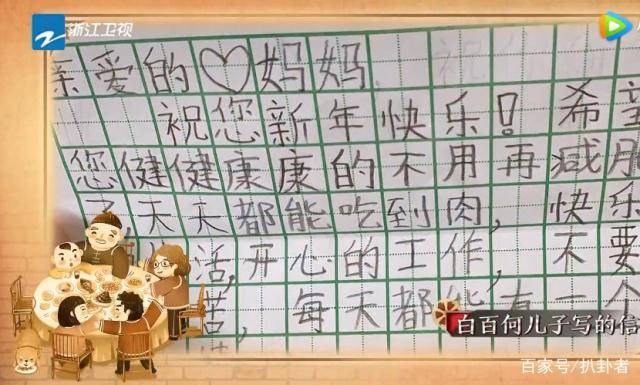 浙江卫视
亲爱的♡妈妈
祝您新年快乐！希望
您健健康康的不用再减
了天天都能吃到肉，快乐
活，开心的工作，不要
苦，每天都能有一个
白百何儿子写的信
百家号/扒卦者